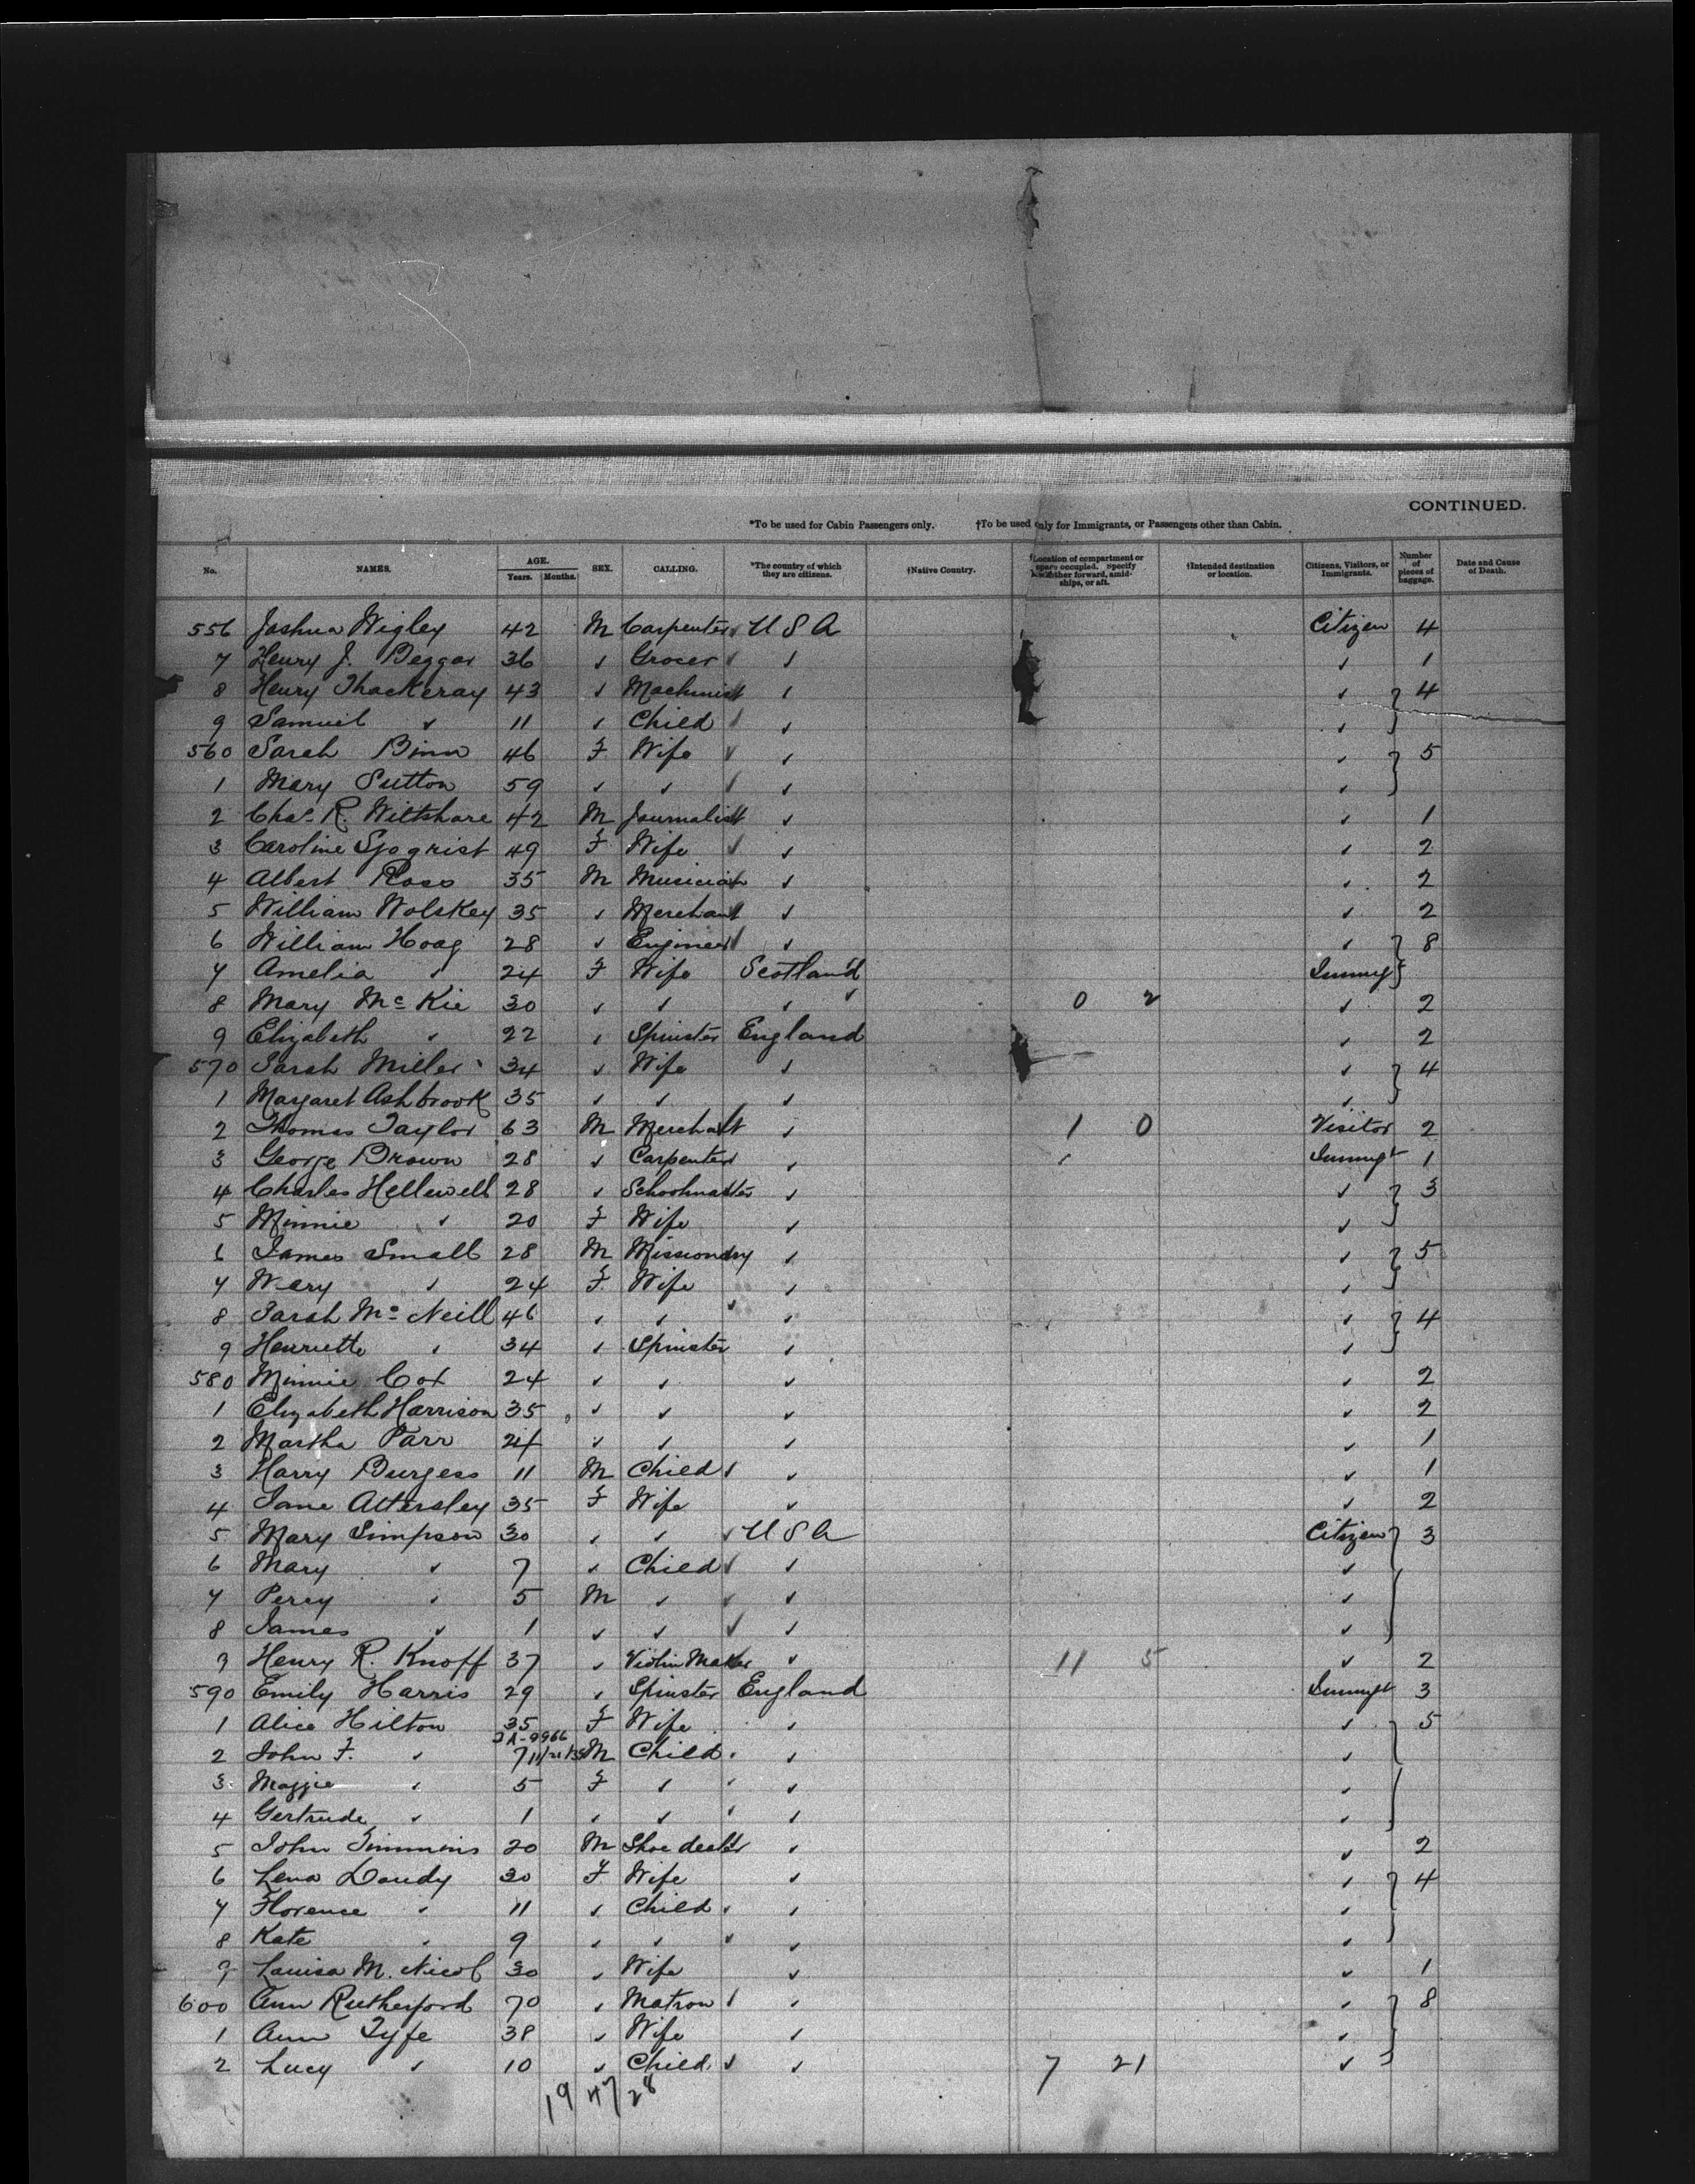 CONTINUED.
*To be used for Cabin Passengers only. †To be used only for Immigrants, or Passengers other than Cabin.
No. NAMES. AGE. Years. Months. SEX. CALLING. *The country of which they are citizens. †Native Country. †Location of compartment or space occupied. Specify whether forward, amidships, or aft. †Intended destination or location. Citizens, Visitors, or Immigrants. Number of pieces of baggage. Date and Cause of Death.
556 Joshua Wigley 42 M Carpenter ✓ U S A Citizen 4
7 Henry J. Beggar 36 ✓ Grocer ✓ ✓ ✓ 1
8 Henry Thackeray 43 ✓ Machinist ✓ ✓ } 4
9 Samuel ✓ 11 ✓ Child ✓ ✓ ✓
560 Sarah Binn 46 F Wife ✓ ✓ ✓ } 5
1 Mary Sutton 59 ✓ ✓ ✓ ✓ ✓
2 Chas. R. Wiltshare 42 M Journalist ✓ ✓ 1
3 Caroline Sjogrist 49 F Wife ✓ ✓ ✓ 2
4 Albert Ross 35 M Musician ✓ ✓ 2
5 William Wolskey 35 ✓ Merchant ✓ ✓ 2
6 William Hoag 28 ✓ Engineer ✓ ✓ } 8
7 Amelia ✓ 24 F Wife Scotland Immigt
8 Mary McKie 30 ✓ ✓ ✓ ✓ 0 2 ✓ 2
9 Elizabeth ✓ 22 ✓ Spinster England ✓ 2
570 Sarah Miller 34 ✓ Wife ✓ ✓ } 4
1 Margaret Ashbrook 35 ✓ ✓ ✓ ✓
2 Thomas Taylor 63 M Merchant ✓ 1 0 Visitor 2
3 George Brown 28 ✓ Carpenter ✓ ✓ Immigt 1
4 Charles Hellewell 28 ✓ Schoolmaster ✓ ✓ } 3
5 Minnie ✓ 20 F Wife ✓ ✓
6 James Small 28 M Missionary ✓ ✓ } 5
7 Mary ✓ 24 F Wife ✓ ✓
8 Sarah McNeill 46 ✓ ✓ ✓ ✓ ✓ } 4
9 Henriette ✓ 34 ✓ Spinster ✓ ✓
580 Minnie Cox 24 ✓ ✓ ✓ ✓ 2
1 Elizabeth Harrison 35 ✓ ✓ ✓ ✓ 2
2 Martha Parr 24 ✓ ✓ ✓ ✓ 1
3 Harry Burgess 11 M Child ✓ ✓ ✓ 1
4 Jane Attersley 35 F Wife ✓ ✓ 2
5 Mary Simpson 30 ✓ ✓ ✓ U S A Citizen } 3
6 Mary ✓ 7 ✓ Child ✓ ✓ ✓
7 Percy ✓ 5 M ✓ ✓ ✓ ✓
8 James ✓ 1 ✓ ✓ ✓ ✓ ✓
9 Henry R. Knopf 37 ✓ Violin Maker ✓ 11 5 ✓ 2
590 Emily Harris 29 ✓ Spinster England Immigt 3
1 Alice Hilton 35 F Wife ✓ ✓ } 5
2A-9966
2 John F. ✓ 7 11/21/35 M Child ✓ ✓ ✓
3 Maggie ✓ 5 F ✓ ✓ ✓ ✓
4 Gertrude ✓ 1 ✓ ✓ ✓ ✓ ✓
5 John Timmins 20 M Shoe dealer ✓ ✓ 2
6 Lena Dandy 30 F Wife ✓ ✓ } 4
7 Florence ✓ 11 ✓ Child ✓ ✓ ✓
8 Kate ✓ 9 ✓ ✓ ✓ ✓ ✓
9 Louisa M. Nicol 30 ✓ Wife ✓ ✓ 1
600 Ann Rutherford 70 ✓ Matron ✓ ✓ ✓ } 8
1 Ann Fyfe 38 ✓ Wife ✓ ✓
2 Lucy ✓ 10 ✓ Child ✓ ✓ 7 21 ✓
19 47 28